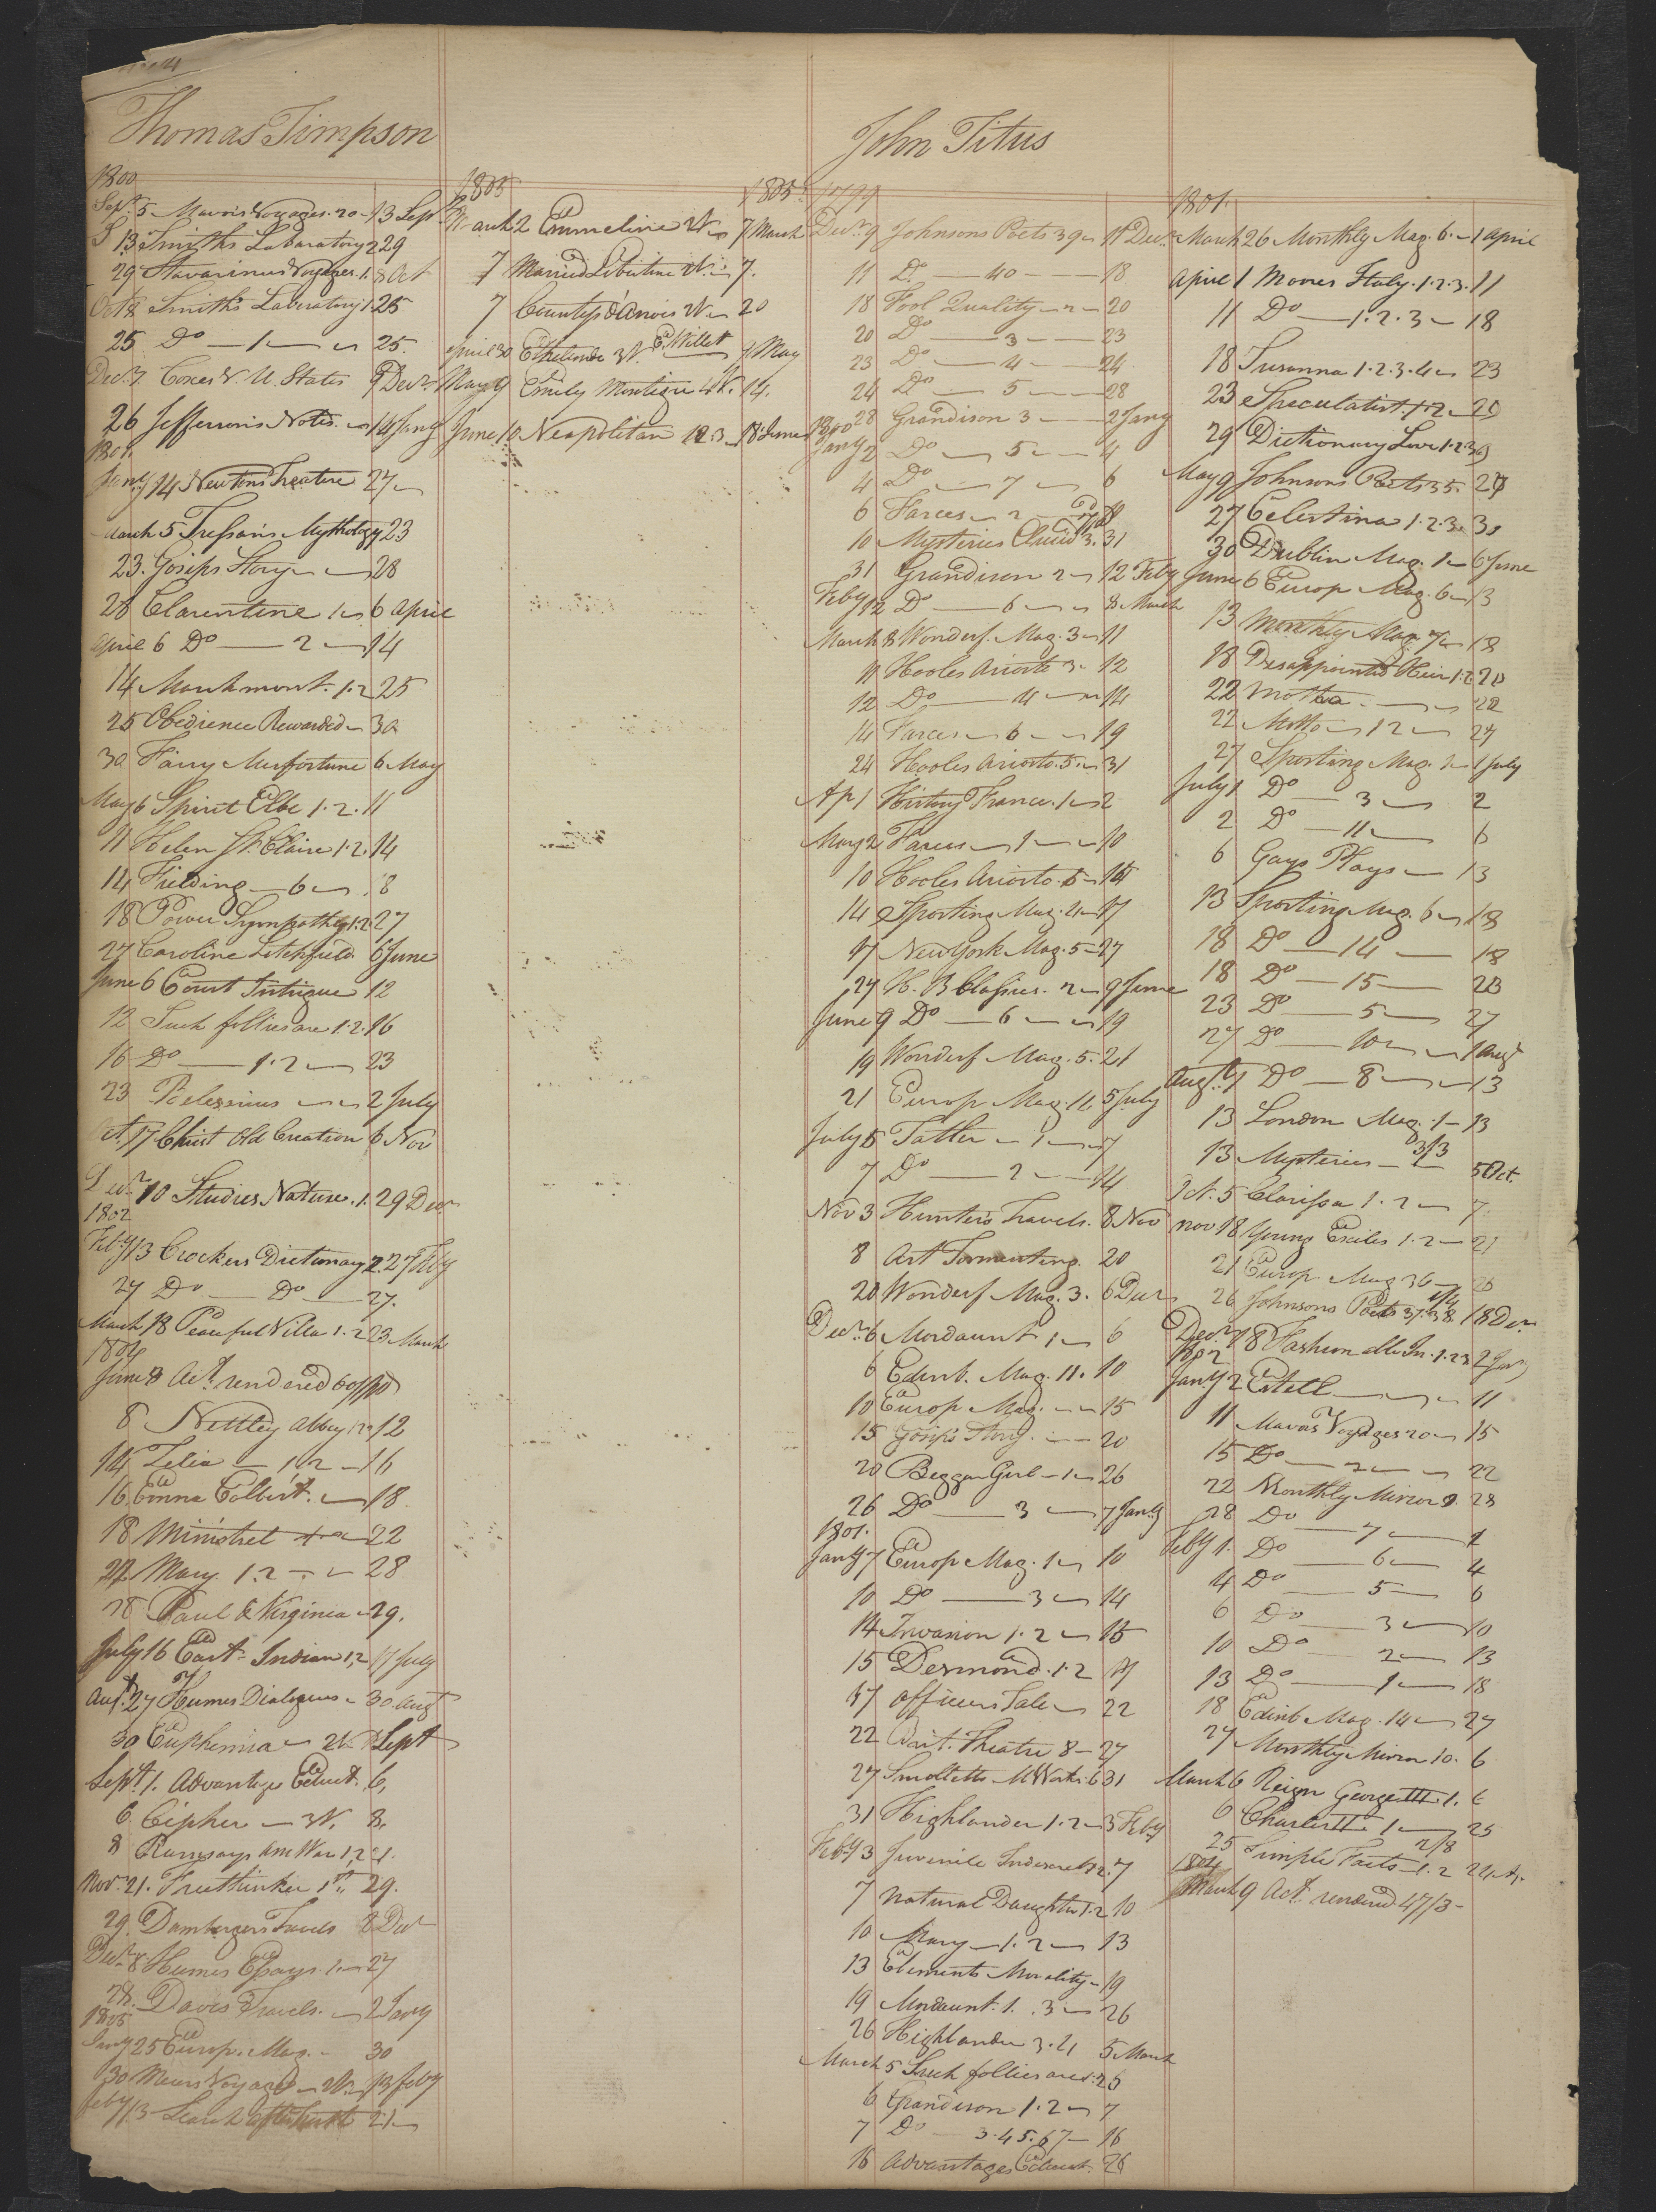 Thomas Timpson
1800
Sept. 5 Mavors Voyages. 20 13 Sept.
13 Smiths Laboratory 2 29
29 Stavorinus Voyages. 1. 8 Oct
Oct 8 Smith's Laboratory 1 25
25 Do 1 25.
Decr. 7. Coxes V. U. States 9 Decr.
26 Jefferson's Notes. 14 Jany
1801.
Jany 14 Newtons Treatise 27
March 5 Tressans Mythology 23
23. Gosips Story 28
28 Clarentine 1 6 April
April 6 Do 2 14
14 Marchmont. 1.2 25
25 Obedience Rewarded 30
30 Fairy Misfortune 6 May
May 6 Spirit Elbe 1.2. 11
11 Helen St. Claire 1.2. 14
14 Fielding 6 18
18 Power Sympathy 1.2. 27
27 Caroline Litchfield 6 June
June 6 Court Intrigue 12
12 Such follies are 1.2. 16
16 Do 1.2 23
23 Belessinus 2 July
Oct. 17 Christ Old Creation 6 Nov
Decr. 10 Studies Nature. 1. 29 Decr
1802
Feby 13 Crockers Dictionary 2. 27 Feby
27 Do Do 27.
March 18 Peaceful Villa 1.2 23 March
1804
June 8 Act. rendered 60/10
8 Nettley Abbey 1.2 12
14 Zelia 1.2 16
16 Emma Colbert. 18
18 Minstrel 22
22 Mary 1.2 28
28 Paul & Virginia 29.
July 16 East Indian 1,2 17 July
Augt. 27 Humes Dialogues 30 Augt
30 Euphemia 2V. Sept
Sept. 1. Advantage Educt. 6,
6 Cipher 3V. 8.
8 Ramsays Am War 1,2
Nov. 21. Freethinker 1st. 29.
29. Dambergers Travels 8 Decr
Decr. 8 Humes Essays. 1. 27
28. Davis Travels. 2 Jany
1805
Jany 25 Europ. Mag. 30
30 Mears Voyages 2V. 13 Feby
Feby 13 Search after Truth 21
1805 1805
March 2 Emmeline 2V 7 March
7 Married Libertine 2V. 7.
7 Countess d'Anois 2V 20
April 30 Ethelinde 3V. E. Willet 9 May
May 9 Emily Montigue 4V. 14.
June 10 Neapolitan 1.2.3 18 June
John Titus
1799
Decr. 9 Johnsons Poets 39 11 Decr.
11 Do. 40 18
18 Fool Quality 2 20
20 Do 3 23
23 Do 4 24
24 Do 5 28
28 Grandison 3 2 Jany
1800
Jany 2 Do 5 4
4 Do 7 6
6 Farces 2 10
10 Mysteries Eluid 3. 31
31 Grandison 2 12 Feby
Feby 12 Do 6 8 March
March 8 Wonderf. Mag. 3 11
11 Hooles Ariosto 3. 12
12 Do 4 14
14 Farces 6 19
24 Hooles Ariosto. 5 31
Ap 1 History France. 1 2
May 2 Farces 1 10
10 Hooles Ariosto. 5 14
14 Sporting Mag. 4 17
17 New York Mag. 5 27
27 H. B Classics. 2 9 June
June 9 Do 6 19
19 Wonderf Mag. 5. 21
21 Europ Mag. 16 5 July
July 5 Tatler 1 7
7 Do 2 14
Nov 3 Hunters Travels. 8 Nov
8 Art Tormenting. 20
20 Wonderf Mag. 3. 6 Decr
Decr. 6 Mordaunt 1 6
6 Edinb. Mag. 11. 10
10 Europ Mag. 15
15 Gosips Story 20
20 Beggar Girl 1 26
26 Do 3 7 Jany
1801.
Jany 7 Europ Mag. 1 10
10 Do 3 14
14 Invasion 1.2 15
15 Desmond. 1.2 17
17 Officers Tale 22
22 Brit. Theatre 8 27
27 Smolletts M Works. 6 31
31 Highlander 1.2 3 Feby
Feby 3 Juvenile Indiscrets 2. 7
7 Natural Daughter 1.2 10
10 Mary 1.2 13
13 Elements Morality 19
19 Mordaunt. 1. .3 26
26 Highlander 3.4 5 March
March 5 Such follies are 2. 25
6 Grandison 1.2 7
7 Do 3.4.5.6.7 16
16 Advantages Educat. 26
1801.
March 26 Monthly Mag. 6. 1 April
April 1 Moores Italy. 1.2.3. 11
11 Do 1.2.3 18
18 Susanna 1.2.3.4 23
23 Speculatist. 1.2 29
29 Dictionary Love 1.2.3 9
May 9 Johnsons Poets 35. 27
27 Celestina 1.2.3. 30
30 Dublin Mag. 1 6 June
June 6 Europ Mag. 6 13
13 Monthly Mag. 7 18
18 Disappointed Heir 1.2 20
22 Motto 22
22 Motto 1 2 27
27 Sporting Mag. 1 July
July 1 Do 3 2
2 Do 11 6
6 Gays Plays 13
13 Sporting Mag. 6 18
18 Do 14 18
18 Do 15 23
23 Do 5 27
27 Do 10 1 Augt
Augt. 1 Do 8 13
13 London Mag. 1 13
13 Mysteries 3/3 5 Oct.
Oct. 5 Clarissa 1.2 7.
Nov 18 Young Exiles 1.2 21
21 Europ Mag 36 26
26 Johnsons Poets 37.38. 18 Decr
Decr. 18 Fashionable In. 1.2.3 2 Jany
1802
Jany 2 Estell 11
11 Mavors Voyages 20 15
15 Do 2 22
22 Monthly Mirror 9. 28
28 Do 7 1
Feby 1. Do 6 4
4 Do 5 6
6 Do 3 10
10 Do 2 13
13 Do 1 18
18 Edinb Mag. 14 27
27 Monthly Mirror 10. 6
March 6 Reign George III. 1. 6
6 Charles II 1 25
25 Simple Facts 1.2 2/8
1804
March 9 Act. rendered 47/3